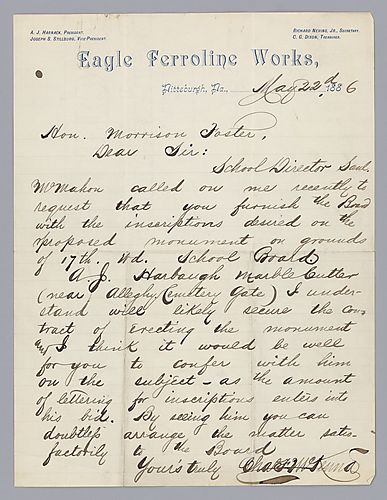 A. J. HARBACK, PRESIDENT.
JOSEPH S. STILLBURG, VICE-PRESIDENT.
RICHARD NEVINS, JR., SECRETARY.
C. G. DIXON, TREASURER.
Eagle Ferroline Works,
Pittsburgh, Pa., May 22d 1886
Hon. Morrison Foster,
Dear Sir:
School Director Saml.
McMahon called on me recently to
request that you furnish the Board
with the inscriptions desired on the
proposed monument on grounds
of 17th. Wd. School Board.
A. J. Harbaugh Marble Cutter
(near Alleghy Cemetery Gate) I under-
stand will likely secure the con-
tract of Erecting the monument
and I think it would be well
for you to confer with him
on the subject - as the amount
of lettering for inscriptions enters into
his bid. By seeing him you can
doubtless arrange the matter satis-
factorily to the Board
Yours truly Chas.